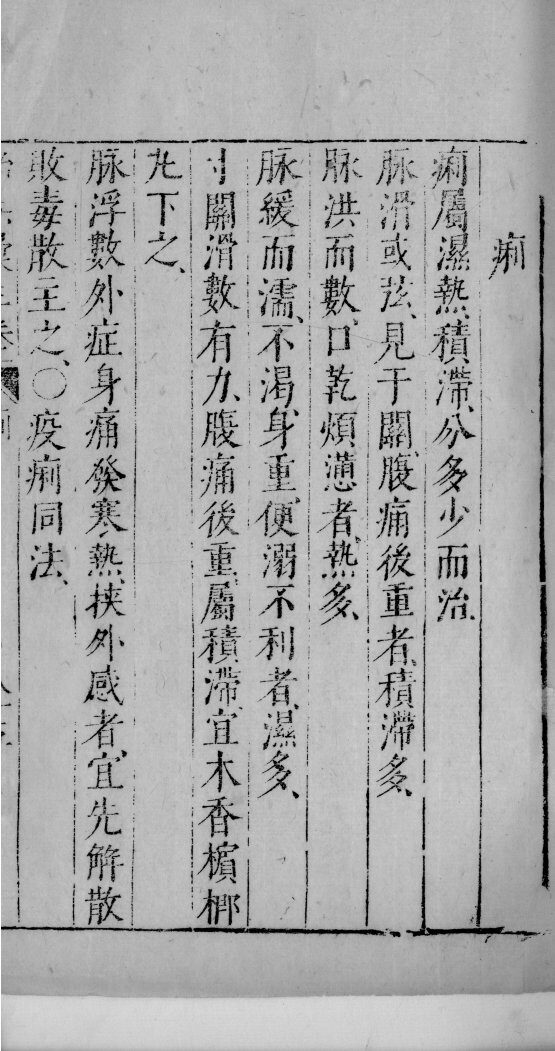 痢
痢屬濕熱、積滯、分多少而治、
脉滑或弦、見于關、腹痛後重者、積滯多、
脉洪而數、口乾煩懣者、熱多、
脉緩而濡、不渴、身重、便溺不利者、濕多、
寸關滑數有力、腹痛後重、屬積滯、宜木香檳榔
丸下之、
脉浮數、外症身痛發寒熱、挾外感者、宜先解散
敗毒散主之、〇疫痢同法、